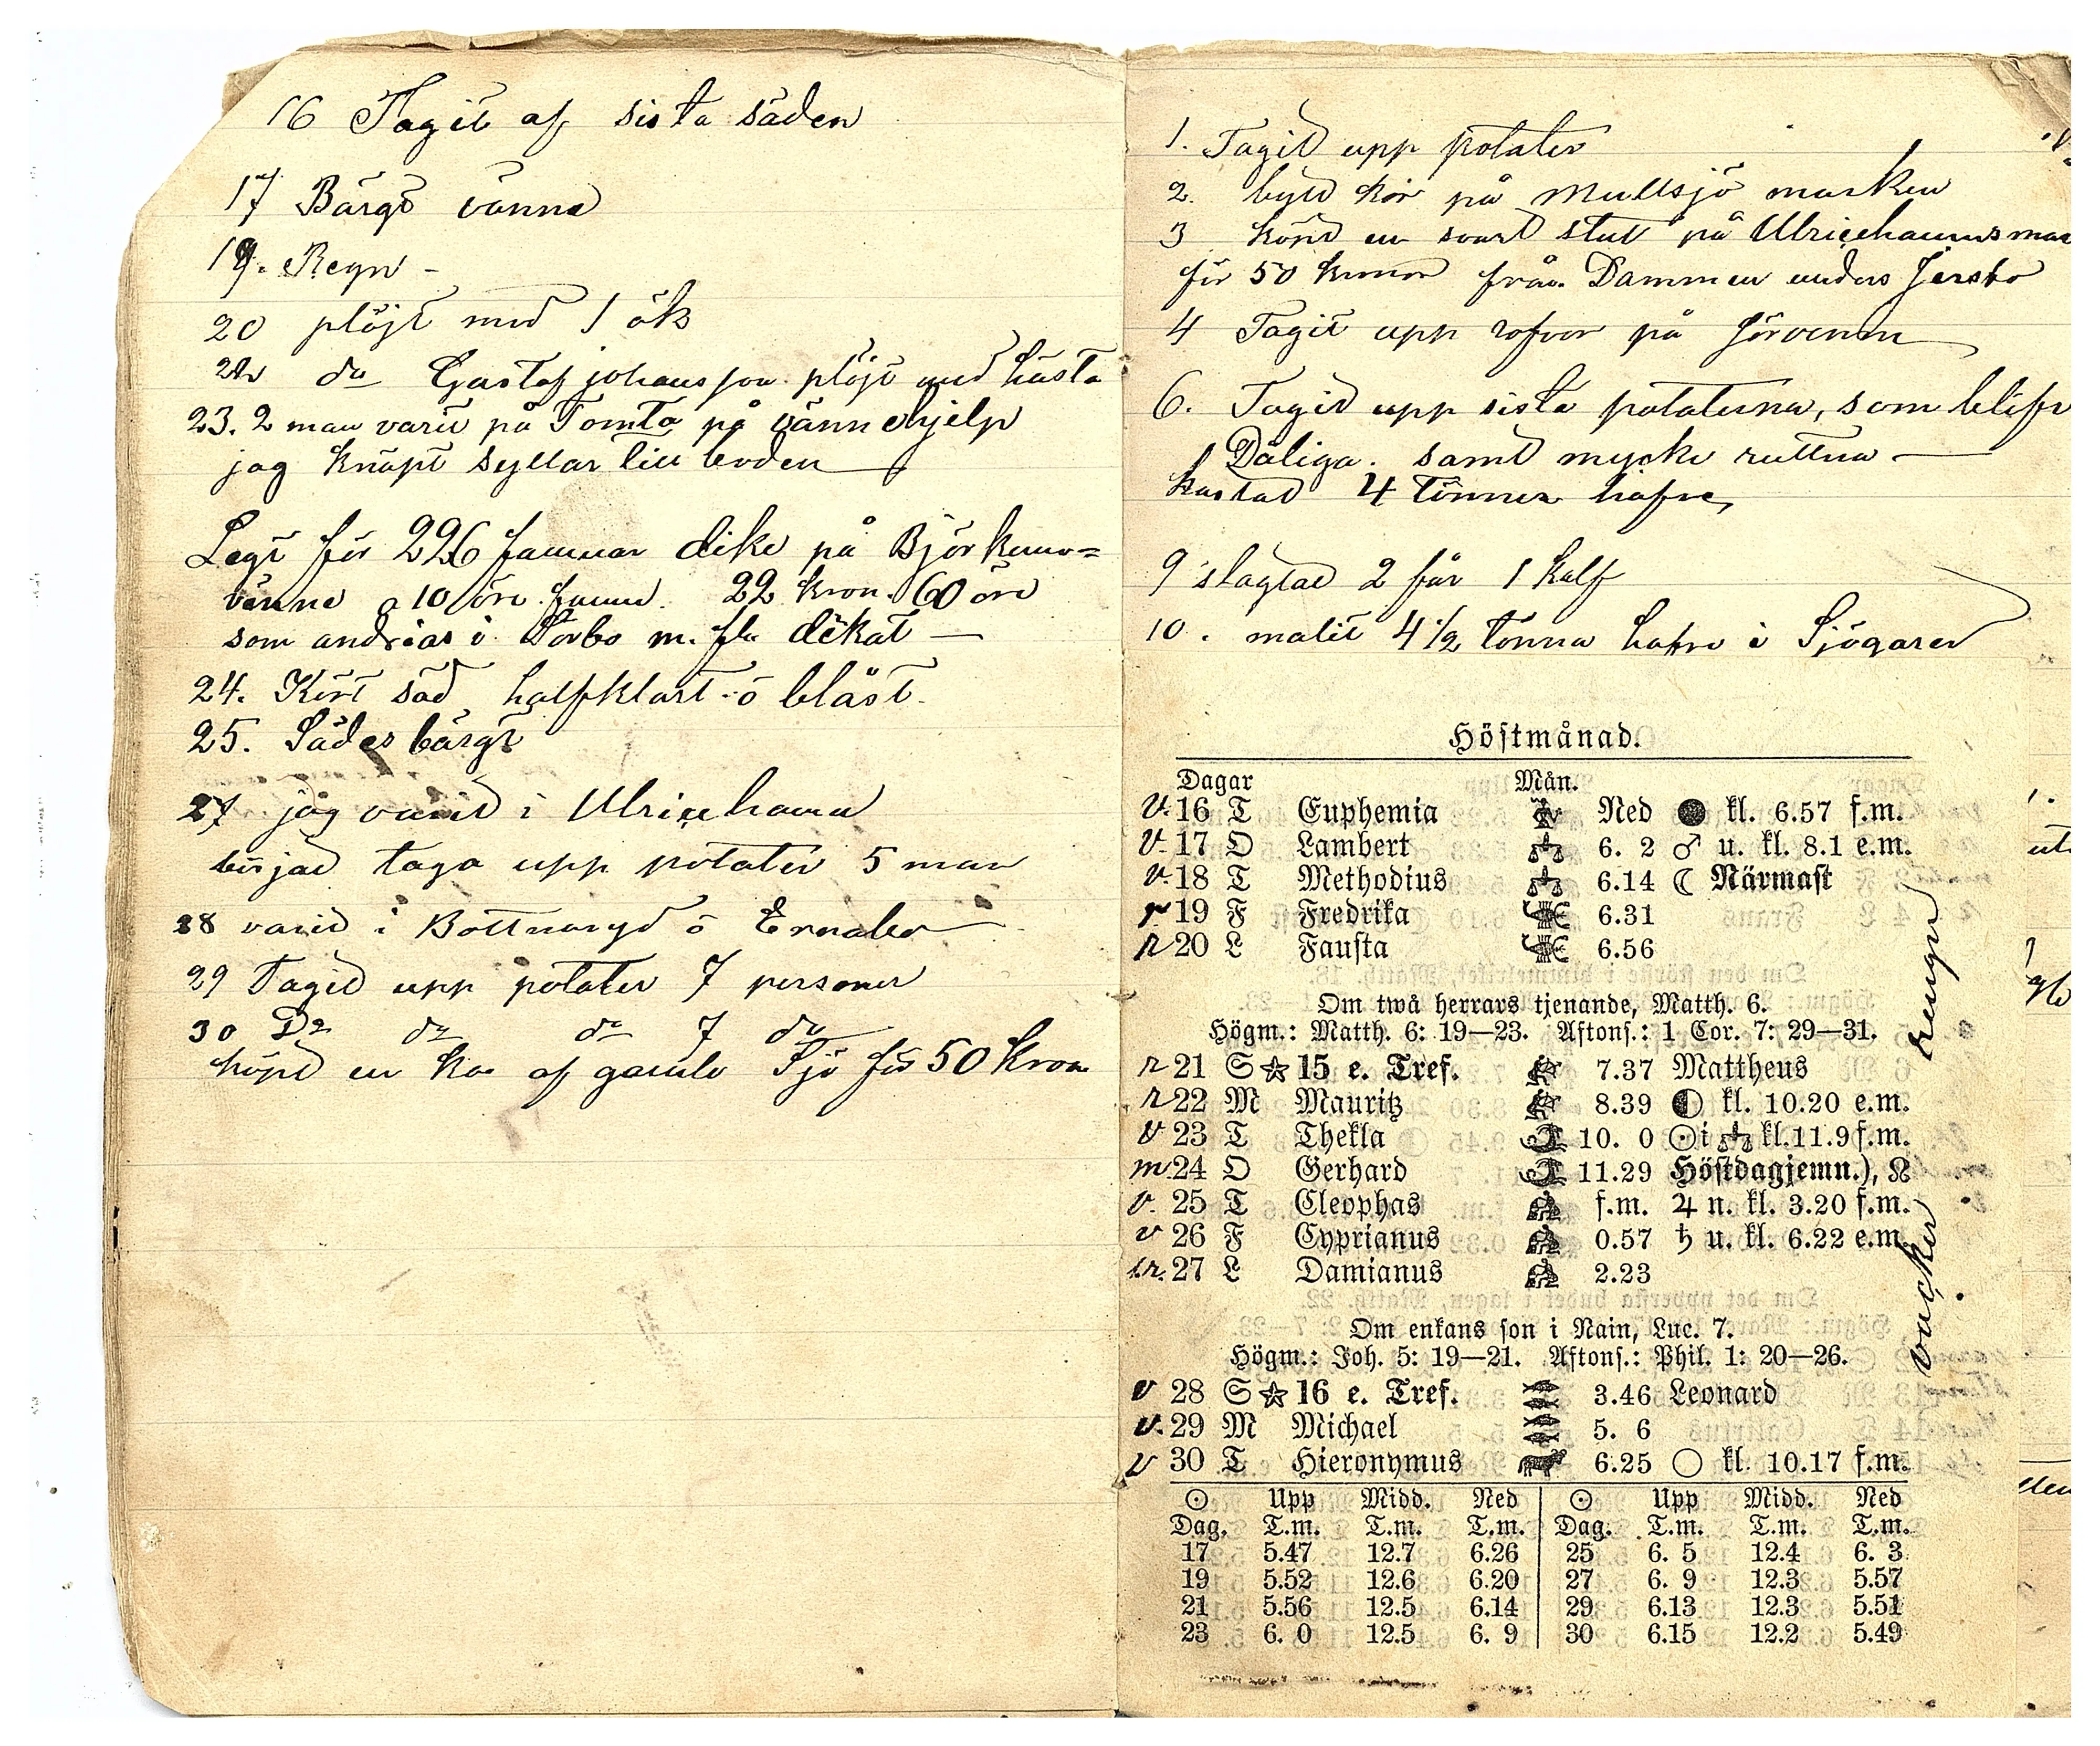 16 Tagit af sista säden
17 Bärgt vänne
19. Regn -
20 plöjt med 1 ök
22 do Gustaf johansson plöjt med hästa
23. 2 man varit på Tomta på vännehjelp
jag knäpt syllar till boden
Legt för 226 famnar dike på Björkemo=
vänne a 10 öre famn. 22 kron. 60 öre
som andreas i Torbo m. fl. dikat —
24. Kört säd halfklart ö blåst.
25. Sädesbärgt
27 jag varit i Ulricehamn
börjad taga upp potater 5 man
28 varit i Bottnaryd ö
29 Tagit upp potater 7 personer
30 Do do do 7 do
köpt en ko af gamle Sjö för 50 kron
1. Tagit upp potater
2. bytt kor på Mullsjö marken
3 köpt en svart stut på Ulricehamnsmar
för 50 kronor från Dammen unders
4 Tagit upp rofvor på
6. Tagit upp sista potaterna, som blifv
Dåliga. samt mycke ruttna —
kastat 4 tönner hafre,
9 slagtad 2 får 1 kalf
10. malit 4 1/2 tönna hafre i Sjögared
Höstmånad.
Dagar Mån.
v. 16 T Euphemia Ned ● kl. 6.57 f.m.
v. 17 O Lambert 6. 2 ♂ u. kl. 8.1 e.m.
v. 18 T Methodius 6.14 ☾ Närmast
r. 19 F Fredrika 6.31
r 20 L Fausta 6.56
Om twå herrars tjenande, Matth. 6.
Högm.: Matth. 6: 19—23. Aftons.: 1 Cor. 7: 29—31.
r 21 S ☆ 15 e. Tref. 7.37 Mattheus
r 22 M Mauritz 8.39 ◐ kl. 10.20 e.m.
v 23 T Thekla 10. 0 ☉ i ♎ kl. 11.9 f.m.
m. 24 O Gerhard 11.29 Höstdagjemn.), ☊
v. 25 T Cleophas f.m. ♃ n. kl. 3.20 f.m.
v 26 F Cyprianus 0.57 ♄ u. kl. 6.22 e.m.
27 L Damianus 2.23
Om enkans son i Nain, Luc. 7.
Högm.: Joh. 5: 19—21. Aftons.: Phil. 1: 20—26.
v 28 S ☆ 16 e. Tref. 3.46 Leonard
v. 29 M Michael 5. 6
v 30 T Hieronymus 6.25 ○ kl. 10.17 f.m.
☉ Upp Midd. Ned ☉ Upp Midd. Ned
Dag. T.m. T.m. T.m. Dag. T.m. T.m. T.m.
17 5.47 12.7 6.26 25 6. 5 12.4 6. 3
19 5.52 12.6 6.20 27 6. 9 12.3 5.57
21 5.56 12.5 6.14 29 6.13 12.3 5.51
23 6. 0 12.5 6. 9 30 6.15 12.2 5.49
vacker